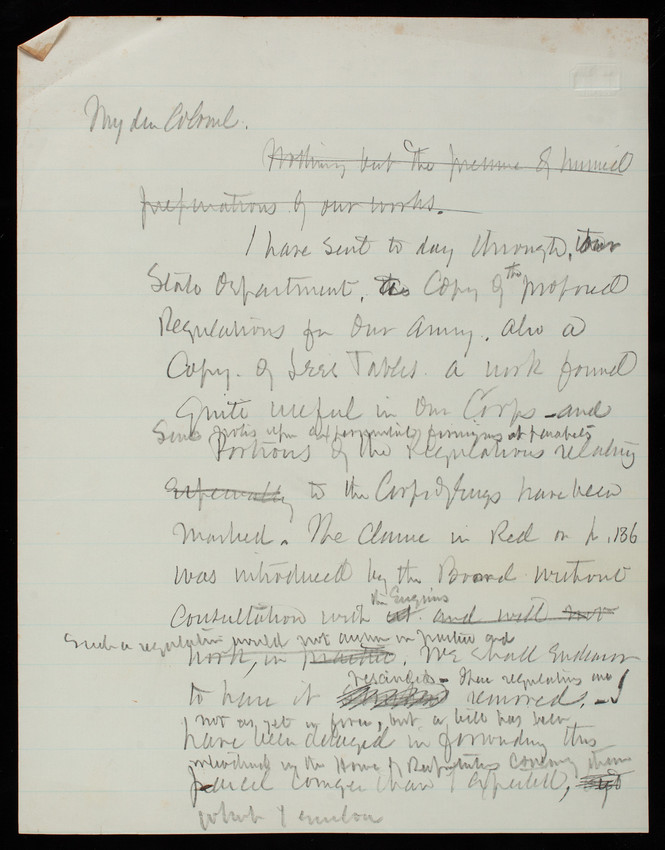 My dear Colonel.
Nothing but the pressure of hurried
preparations of our works.
I have sent to day through, our
State Department, a Copy of the proposed
Regulations for our army, also a
Copy. of Lees Tables. a work found
quite useful in our Corps - and
some upon at parapets
Portions of the Regulations relating
Especially to the Corps of Engrs have been
marked. The Clause in Red on p. 136
was introduced by the Board without
Consultation with the Engines and will not
Such a regulation would not answer in practice and
work, in practice. We shall Endeavor
rescinded - These regulations are
to have it removed. - I
not as yet in force, but a bill has been
have been delayed in forwarding this
introduced in the House of Representatives
parcel longer than I expected,
which I enclose